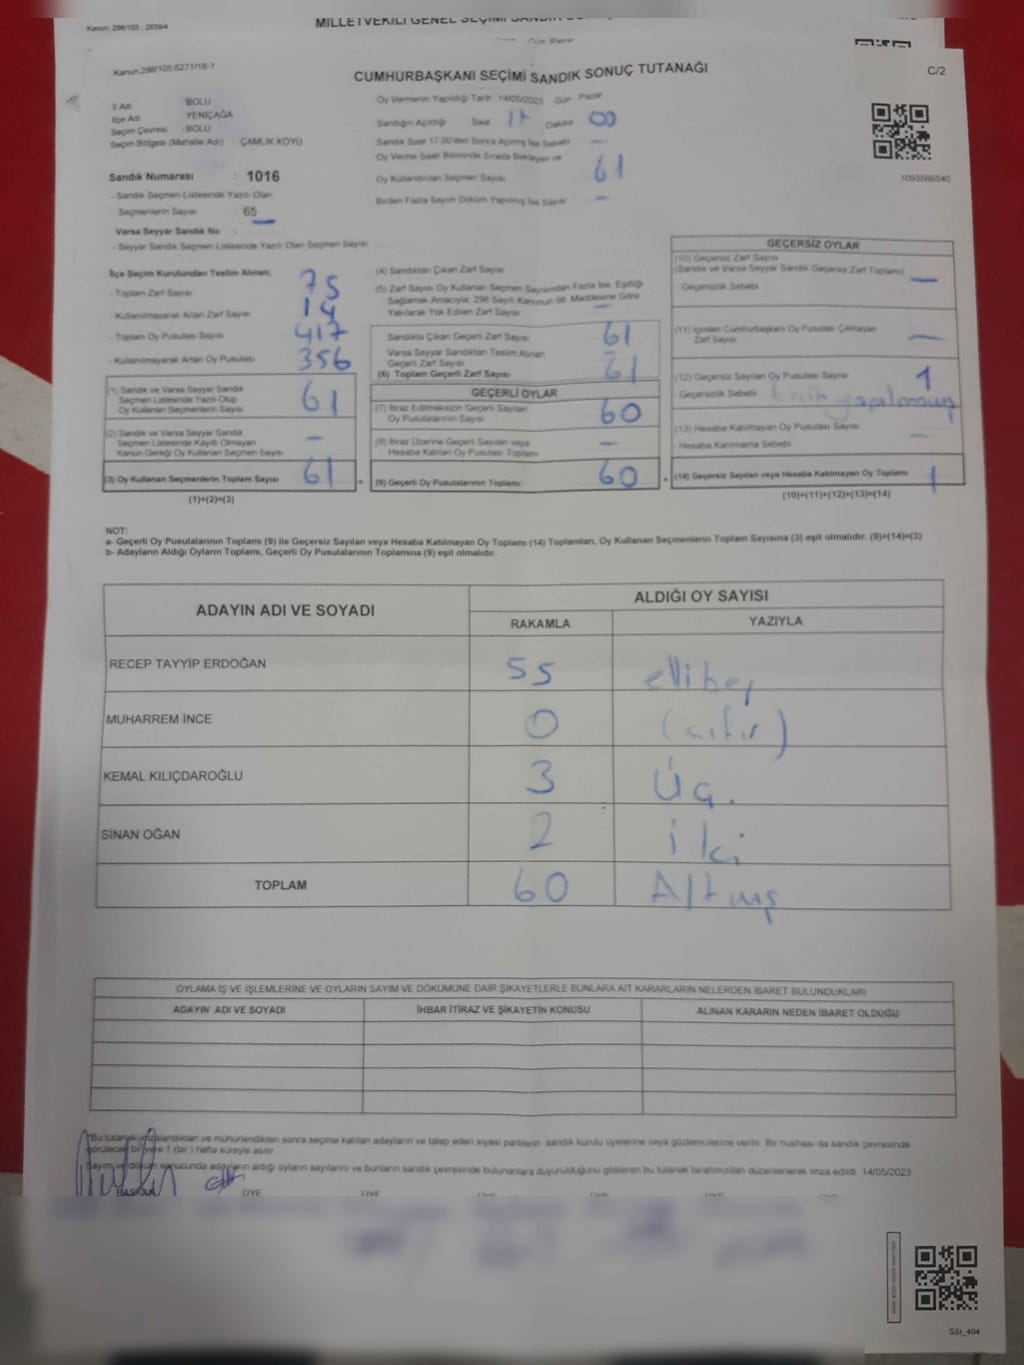 Kanun: 298/105 : 2839/4
MİLLETVEKİLİ GENEL SEÇİMİ SANDIK
Kanun:298/105:6271/18-1
CUMHURBAŞKANI SEÇİMİ SANDIK SONUÇ TUTANAĞI
C/2
İl Adı : BOLU
İlçe Adı : YENİÇAĞA
Seçim Çevresi : BOLU
Seçim Bölgesi (Mahalle Adı) : ÇAMLIK KÖYÜ
Oy Vermenin Yapıldığı Tarih : 14/05/2023 Gün : Pazar
Sandığın Açıldığı Saat 17 Dakika 00
Sandık Saat 17.00'den Sonra Açılmış İse Sebebi —
Oy Verme Saati Bitiminde Sırada Bekleyen ve
Oy Kullandırılan Seçmen Sayısı 61
Birden Fazla Sayım Döküm Yapılmış İse Sayısı —
1093566540
Sandık Numarası : 1016
- Sandık Seçmen Listesinde Yazılı Olan
Seçmenlerin Sayısı 65
Varsa Seyyar Sandık No :
- Seyyar Sandık Seçmen Listesinde Yazılı Olan Seçmen Sayısı
İlçe Seçim Kurulundan Teslim Alınan;
- Toplam Zarf Sayısı 75
- Kullanılmayarak Artan Zarf Sayısı 14
- Toplam Oy Pusulası Sayısı 417
- Kullanılmayarak Artan Oy Pusulası 356
(1) Sandık ve Varsa Seyyar Sandık
Seçmen Listesinde Yazılı Olup
Oy Kullanan Seçmenlerin Sayısı 61
(2) Sandık ve Varsa Seyyar Sandık
Seçmen Listesinde Kayıtlı Olmayan
Kanun Gereği Oy Kullanan Seçmen Sayısı —
(3) Oy Kullanan Seçmenlerin Toplam Sayısı 61 =
(1)+(2)=(3)
(4) Sandıktan Çıkan Zarf Sayısı
(5) Zarf Sayısı Oy Kullanan Seçmen Sayısından Fazla İse, Eşitliği
Sağlamak Amacıyla, 298 Sayılı Kanunun 98. Maddesine Göre
Yakılarak Yok Edilen Zarf Sayısı —
Sandıkta Çıkan Geçerli Zarf Sayısı 61
Varsa Seyyar Sandıktan Teslim Alınan
Geçerli Zarf Sayısı
(6) Toplam Geçerli Zarf Sayısı 61
GEÇERLİ OYLAR
(7) İtiraz Edilmeksizin Geçerli Sayılan
Oy Pusulalarının Sayısı 60
(8) İtiraz Üzerine Geçerli Sayılan veya
Hesaba Katılan Oy Pusulası Toplamı —
(9) Geçerli Oy Pusulalarının Toplamı 60 +
GEÇERSİZ OYLAR
(10) Geçersiz Zarf Sayısı
(Sandık ve Varsa Seyyar Sandık Geçersiz Zarf Toplamı) —
- Geçersizlik Sebebi
(11) İçinden Cumhurbaşkanı Oy Pusulası Çıkmayan
Zarf Sayısı —
(12) Geçersiz Sayılan Oy Pusulası Sayısı 1
- Geçersizlik Sebebi tercih yapılmamış
(13) Hesaba Katılmayan Oy Pusulası Sayısı —
- Hesaba Katılmama Sebebi
(14) Geçersiz Sayılan veya Hesaba Katılmayan Oy Toplamı 1
(10)+(11)+(12)+(13)=(14)
NOT:
a- Geçerli Oy Pusulalarının Toplamı (9) ile Geçersiz Sayılan veya Hesaba Katılmayan Oy Toplamı (14) Toplamları, Oy Kullanan Seçmenlerin Toplam Sayısına (3) eşit olmalıdır. (9)+(14)=(3)
b- Adayların Aldığı Oyların Toplamı, Geçerli Oy Pusulalarının Toplamına (9) eşit olmalıdır.
ADAYIN ADI VE SOYADI
ALDIĞI OY SAYISI
RAKAMLA YAZIYLA
RECEP TAYYİP ERDOĞAN 55 ellibeş
MUHARREM İNCE 0 (sıfır)
KEMAL KILIÇDAROĞLU 3 Üç.
SİNAN OĞAN 2 iki
TOPLAM 60 Altmış
OYLAMA İŞ VE İŞLEMLERİNE VE OYLARIN SAYIM VE DÖKÜMÜNE DAİR ŞİKAYETLERLE BUNLARA AİT KARARLARIN NELERDEN İBARET BULUNDUKLARI
ADAYIN ADI VE SOYADI İHBAR İTİRAZ VE ŞİKAYETİN KONUSU ALINAN KARARIN NEDEN İBARET OLDUĞU
"Bu tutanak imzalandıktan ve mühürlendikten sonra seçime katılan adayların ve talep eden siyasi partilerin sandık kurulu üyelerine veya gözlemcilerine verilir. Bir nüshası da sandık çevresinde
görülecek bir yere 1 (bir) hafta süreyle asılır
Sayım ve döküm sonucunda adayların aldığı oyların sayılarını ve bunların sandık çevresinde bulunanlara duyurulduğunu gösteren bu tutanak tarafımızdan düzenlenerek imza edildi. 14/05/2023
BAŞKAN ÜYE ÜYE ÜYE ÜYE ÜYE
SSİ_404